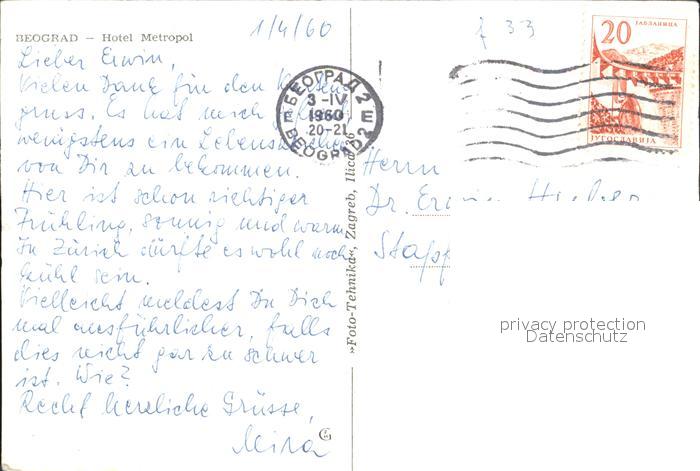 BEOGRAD – Hotel Metropol
1/4/60
Lieber Erwin,
Vielen Dank für den
gruss. Es hat mich
wenigstens ein Lebenszeichen
von Dir zu bekommen.
Hier ist schon richtiger
Frühling, sonnig und warm.
In Zürich dürfte es wohl noch
kühl sein.
Vielleicht meldest Du Dich
mal ausführlicher, falls
dies nicht gar zu schwer
ist. Wie?
Recht herzliche Grüsse,
Mira
»Foto-Tehnika«, Zagreb, Ilica
БЕОГРАД 2
3-IV
1960
20-21
BEOGRAD 2
f 33
20
ЈАБЛАНИЦА
ЈУГОСЛАВИЈА
Herrn
Dr.
privacy protection
Datenschutz